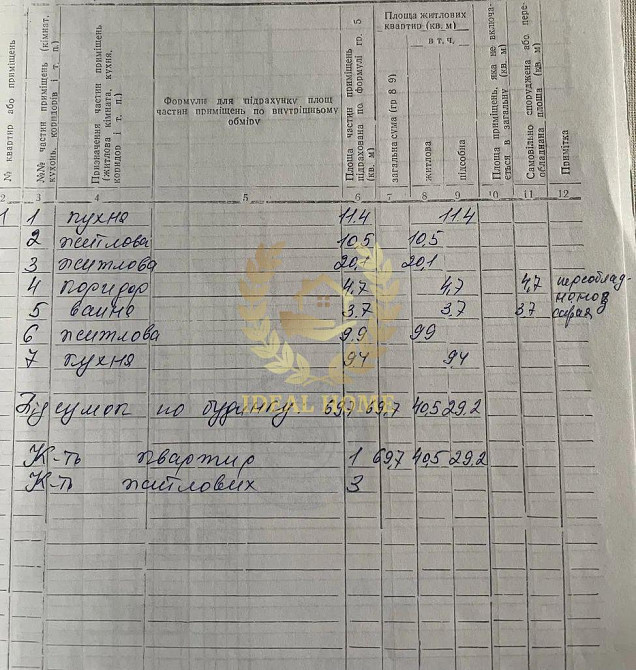 № квартир або приміщень
№№ частин приміщень (кімнат, кухонь, коридорів і т. п.)
Призначення частин приміщень (житлова кімната, кухня, коридор і т. п.)
Формули для підрахунку площ частин приміщень по внутрішньому обміру
Площа частин приміщень підрахована по формулі гр. 5 (кв. м)
Площа житлових квартир (кв. м)
загальна сума (гр 8 9)
в т. ч.
житлова
підсобна
Площа приміщень, яка не включається в загальну (кв. м)
Самовільно споруджена або переобладнана, площа (кв. м)
Примітка
2 3 4 5 6 7 8 9 10 11 12
1 1 кухня 11.4 11.4
2 житлова 10,5 10,5
3 житлова 20,1 20,1
4 коридор 4,7 4,7 4,7 переоблад-
5 ванна 3.7 3.7 3.7
6 житлова 9.9 99
7 кухня 94 9.4
IDEAL HOME
Підсумок по будинку 69,7 69,7 40,5 29.2
К-ть квартир 1 69,7 40,5 29,2
К-ть житлових 3